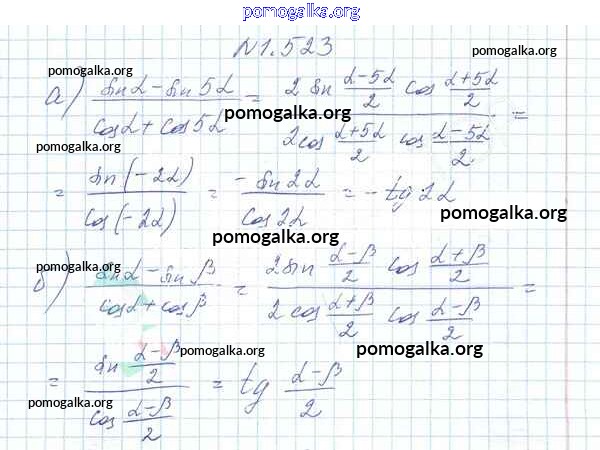 pomogalka.org
№1.523
pomogalka.org
pomogalka.org
а) (sin α − sin 5α)/(cos α + cos 5α) = (2 sin (α−5α)/2 cos (α+5α)/2)/(2 cos (α+5α)/2 cos (α−5α)/2) =
pomogalka.org
pomogalka.org
= sin(−2α)/cos(−2α) = −sin 2α/cos 2α = −tg 2α
pomogalka.org
pomogalka.org
б) (sin α − sin β)/(cos α + cos β) = (2 sin (α−β)/2 cos (α+β)/2)/(2 cos (α+β)/2 cos (α−β)/2) =
pomogalka.org
pomogalka.org
pomogalka.org
= (sin (α−β)/2)/(cos (α−β)/2) = tg (α−β)/2
pomogalka.org
pomogalka.org